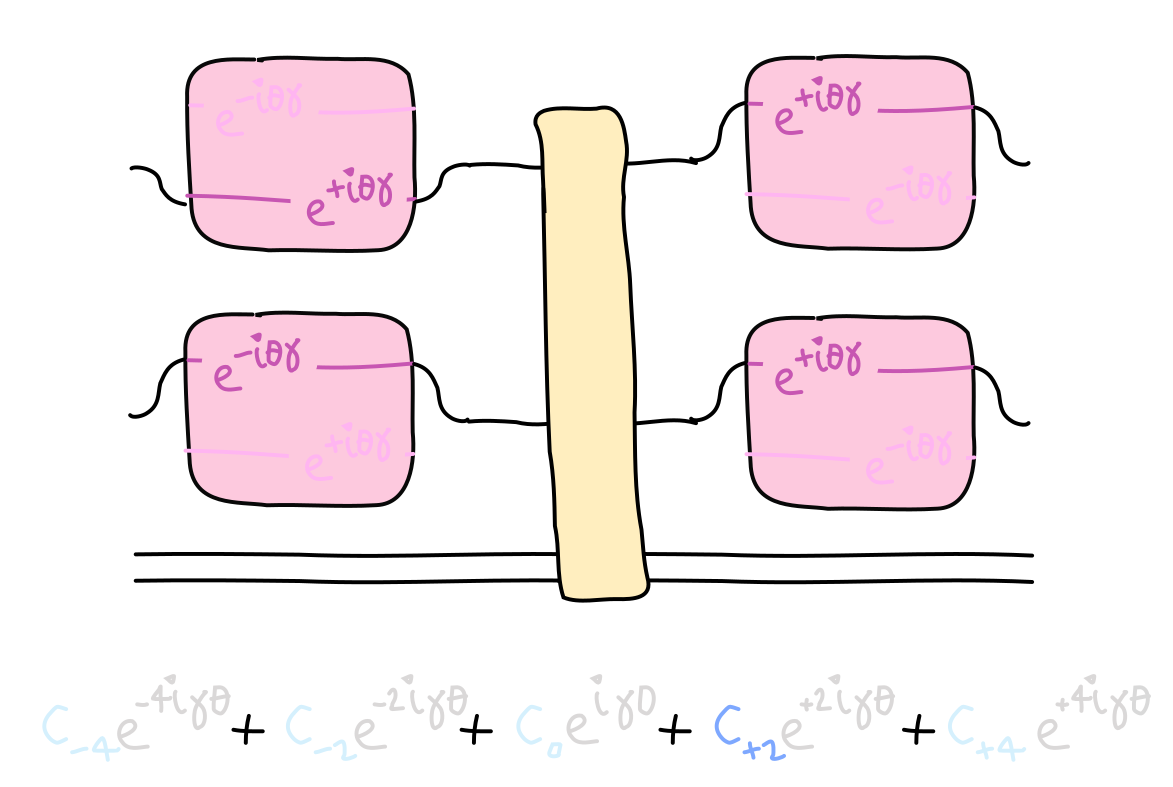 e^{-iθγ} e^{+iθγ}
e^{+iθγ} e^{-iθγ}
e^{-iθγ} e^{+iθγ}
e^{+iθγ} e^{-iθγ}
C_{-4}e^{-4iγθ} + C_{-2}e^{-2iγθ} + C_{0}e^{iγ0} + C_{+2}e^{+2iγθ} + C_{+4}e^{+4iγθ}